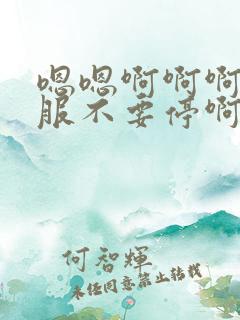 嗯嗯啊啊啊
服不要停啊
何智輝
未经同意禁止转载